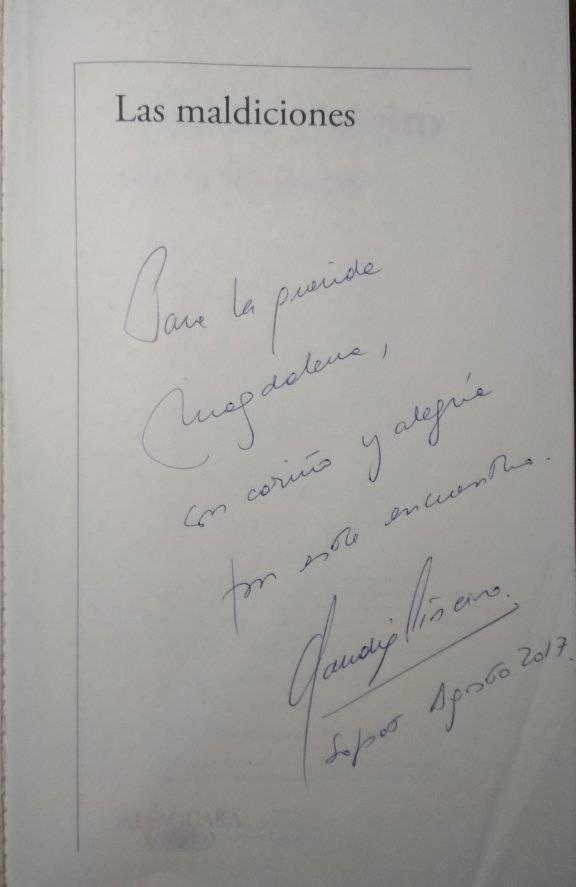 Las maldiciones
Para la querida
Magdalena,
con cariño y alegría
por este encuentro.
Claudia Piñeiro.
Sopot Agosto 2017.
ALFAGUARA